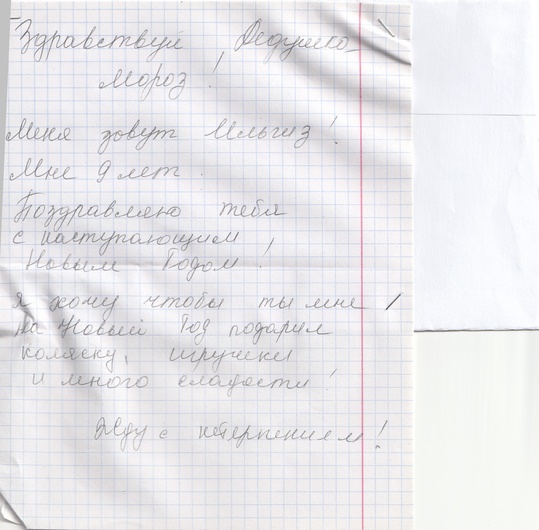 Здравствуй Дедушка
Мороз!
Меня зовут Ильгиз!
Мне 9 лет.
Поздравляю тебя
с наступающим
Новым Годом!
Я хочу чтобы ты мне
на Новый Год подарил
коляску, игрушки
и много сладости!
Жду с нетерпением!